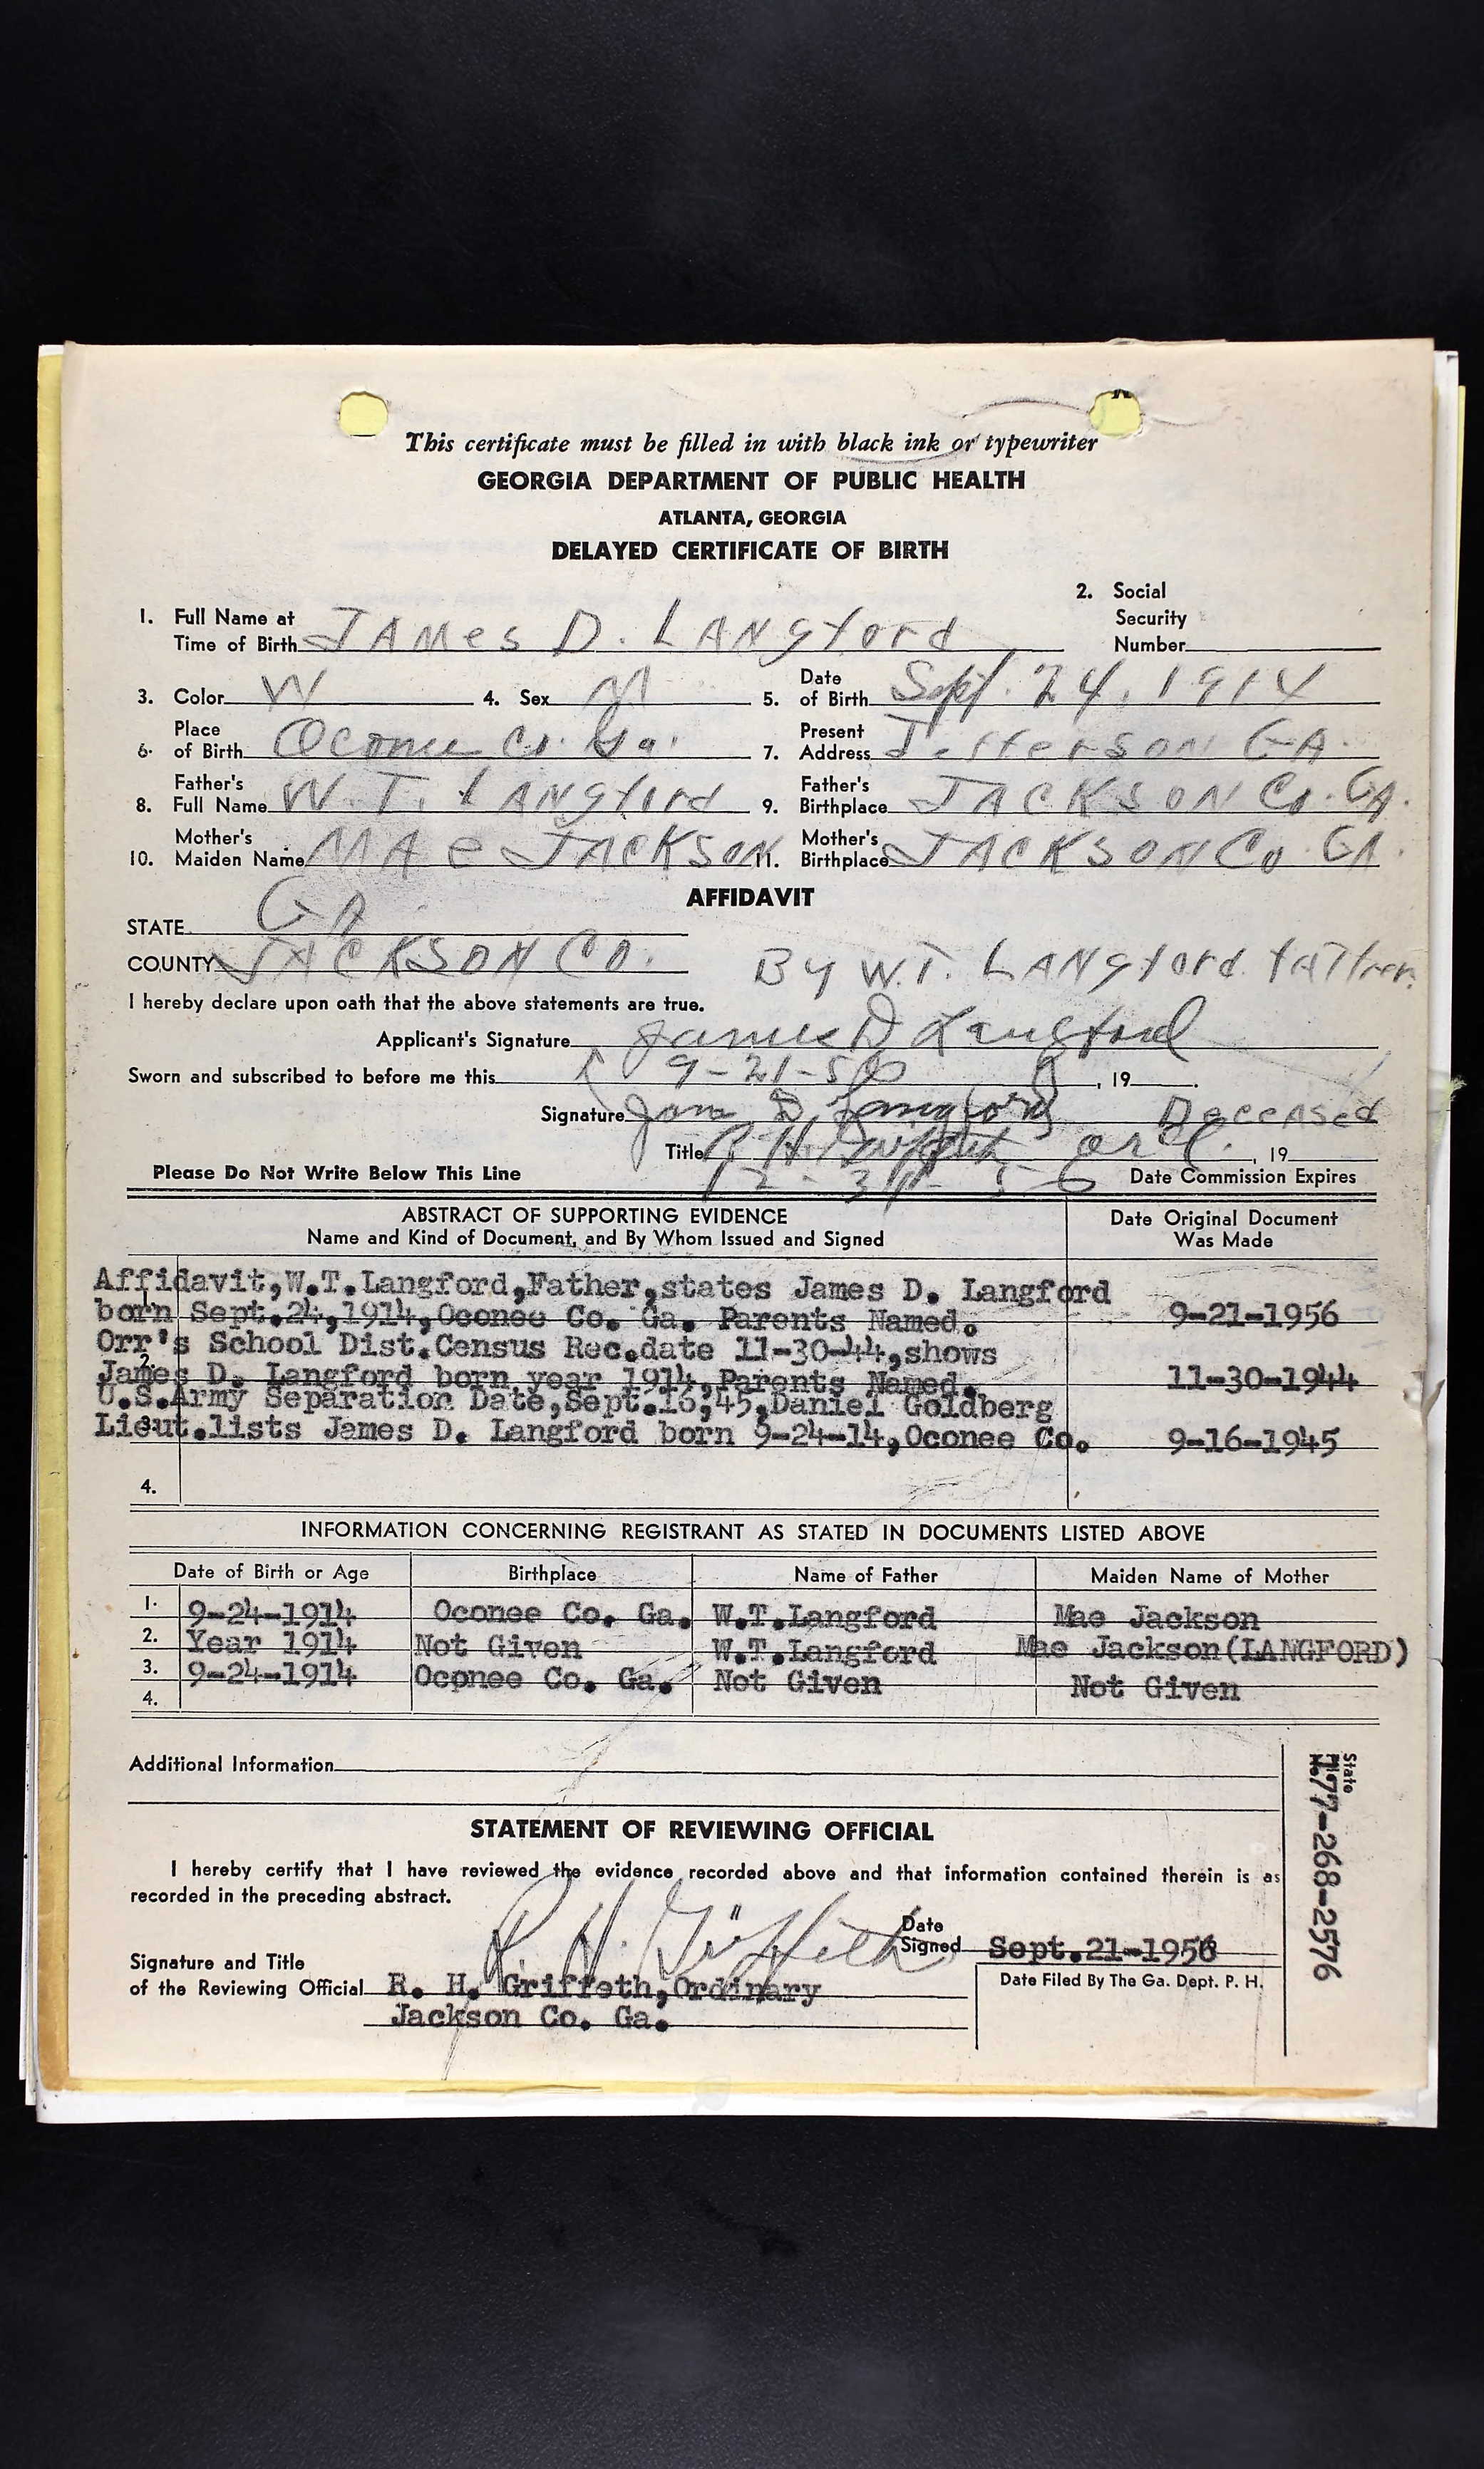 This certificate must be filled in with black ink or typewriter
GEORGIA DEPARTMENT OF PUBLIC HEALTH
ATLANTA, GEORGIA
DELAYED CERTIFICATE OF BIRTH
1. Full Name at Time of Birth JAMes D. LANgford
2. Social Security Number
3. Color W 4. Sex M 5. Date of Birth Sept. 24, 1914
6. Place of Birth Oconee Co. Ga. 7. Present Address Jefferson GA.
8. Father's Full Name W. T. LANgford 9. Father's Birthplace JACKSON Co. GA.
10. Mother's Maiden Name MAe JACKSON 11. Mother's Birthplace JACKSON Co. GA.
AFFIDAVIT
STATE GA.
COUNTY JACKSON CO. By W.T. LANgford father
I hereby declare upon oath that the above statements are true.
Applicant's Signature James D Langford
Sworn and subscribed to before me this 9-21-56, 19 .
Signature D. Langford Deceased
Title , 19
Please Do Not Write Below This Line 12-31-56 Date Commission Expires
ABSTRACT OF SUPPORTING EVIDENCE
Name and Kind of Document, and By Whom Issued and Signed
Date Original Document Was Made
1. Affidavit,W.T.Langford,Father,states James D. Langford
born Sept.24,1914,Oconee Co. Ga. Parents Named. 9-21-1956
2. Orr's School Dist.Census Rec.date 11-30-44,shows
James D. Langford born year 1914,Parents Named. 11-30-1944
3. U.S.Army Separation Date,Sept.16,45,Daniel Goldberg
Lieut.lists James D. Langford born 9-24-14,Oconee Co. 9-16-1945
4.
INFORMATION CONCERNING REGISTRANT AS STATED IN DOCUMENTS LISTED ABOVE
Date of Birth or Age Birthplace Name of Father Maiden Name of Mother
1. 9-24-1914 Oconee Co. Ga. W.T.Langford Mae Jackson
2. Year 1914 Not Given W.T.Langford Mae Jackson(LANGFORD)
3. 9-24-1914 Oconee Co. Ga. Not Given Not Given
4.
Additional Information
STATEMENT OF REVIEWING OFFICIAL
I hereby certify that I have reviewed the evidence recorded above and that information contained therein is as
recorded in the preceding abstract.
R. H. Griffeth
Date Signed Sept.21-1956
Signature and Title
of the Reviewing Official R. H. Griffeth,Ordinary
Jackson Co. Ga.
Date Filed By The Ga. Dept. P. H.
State
177-268-2576